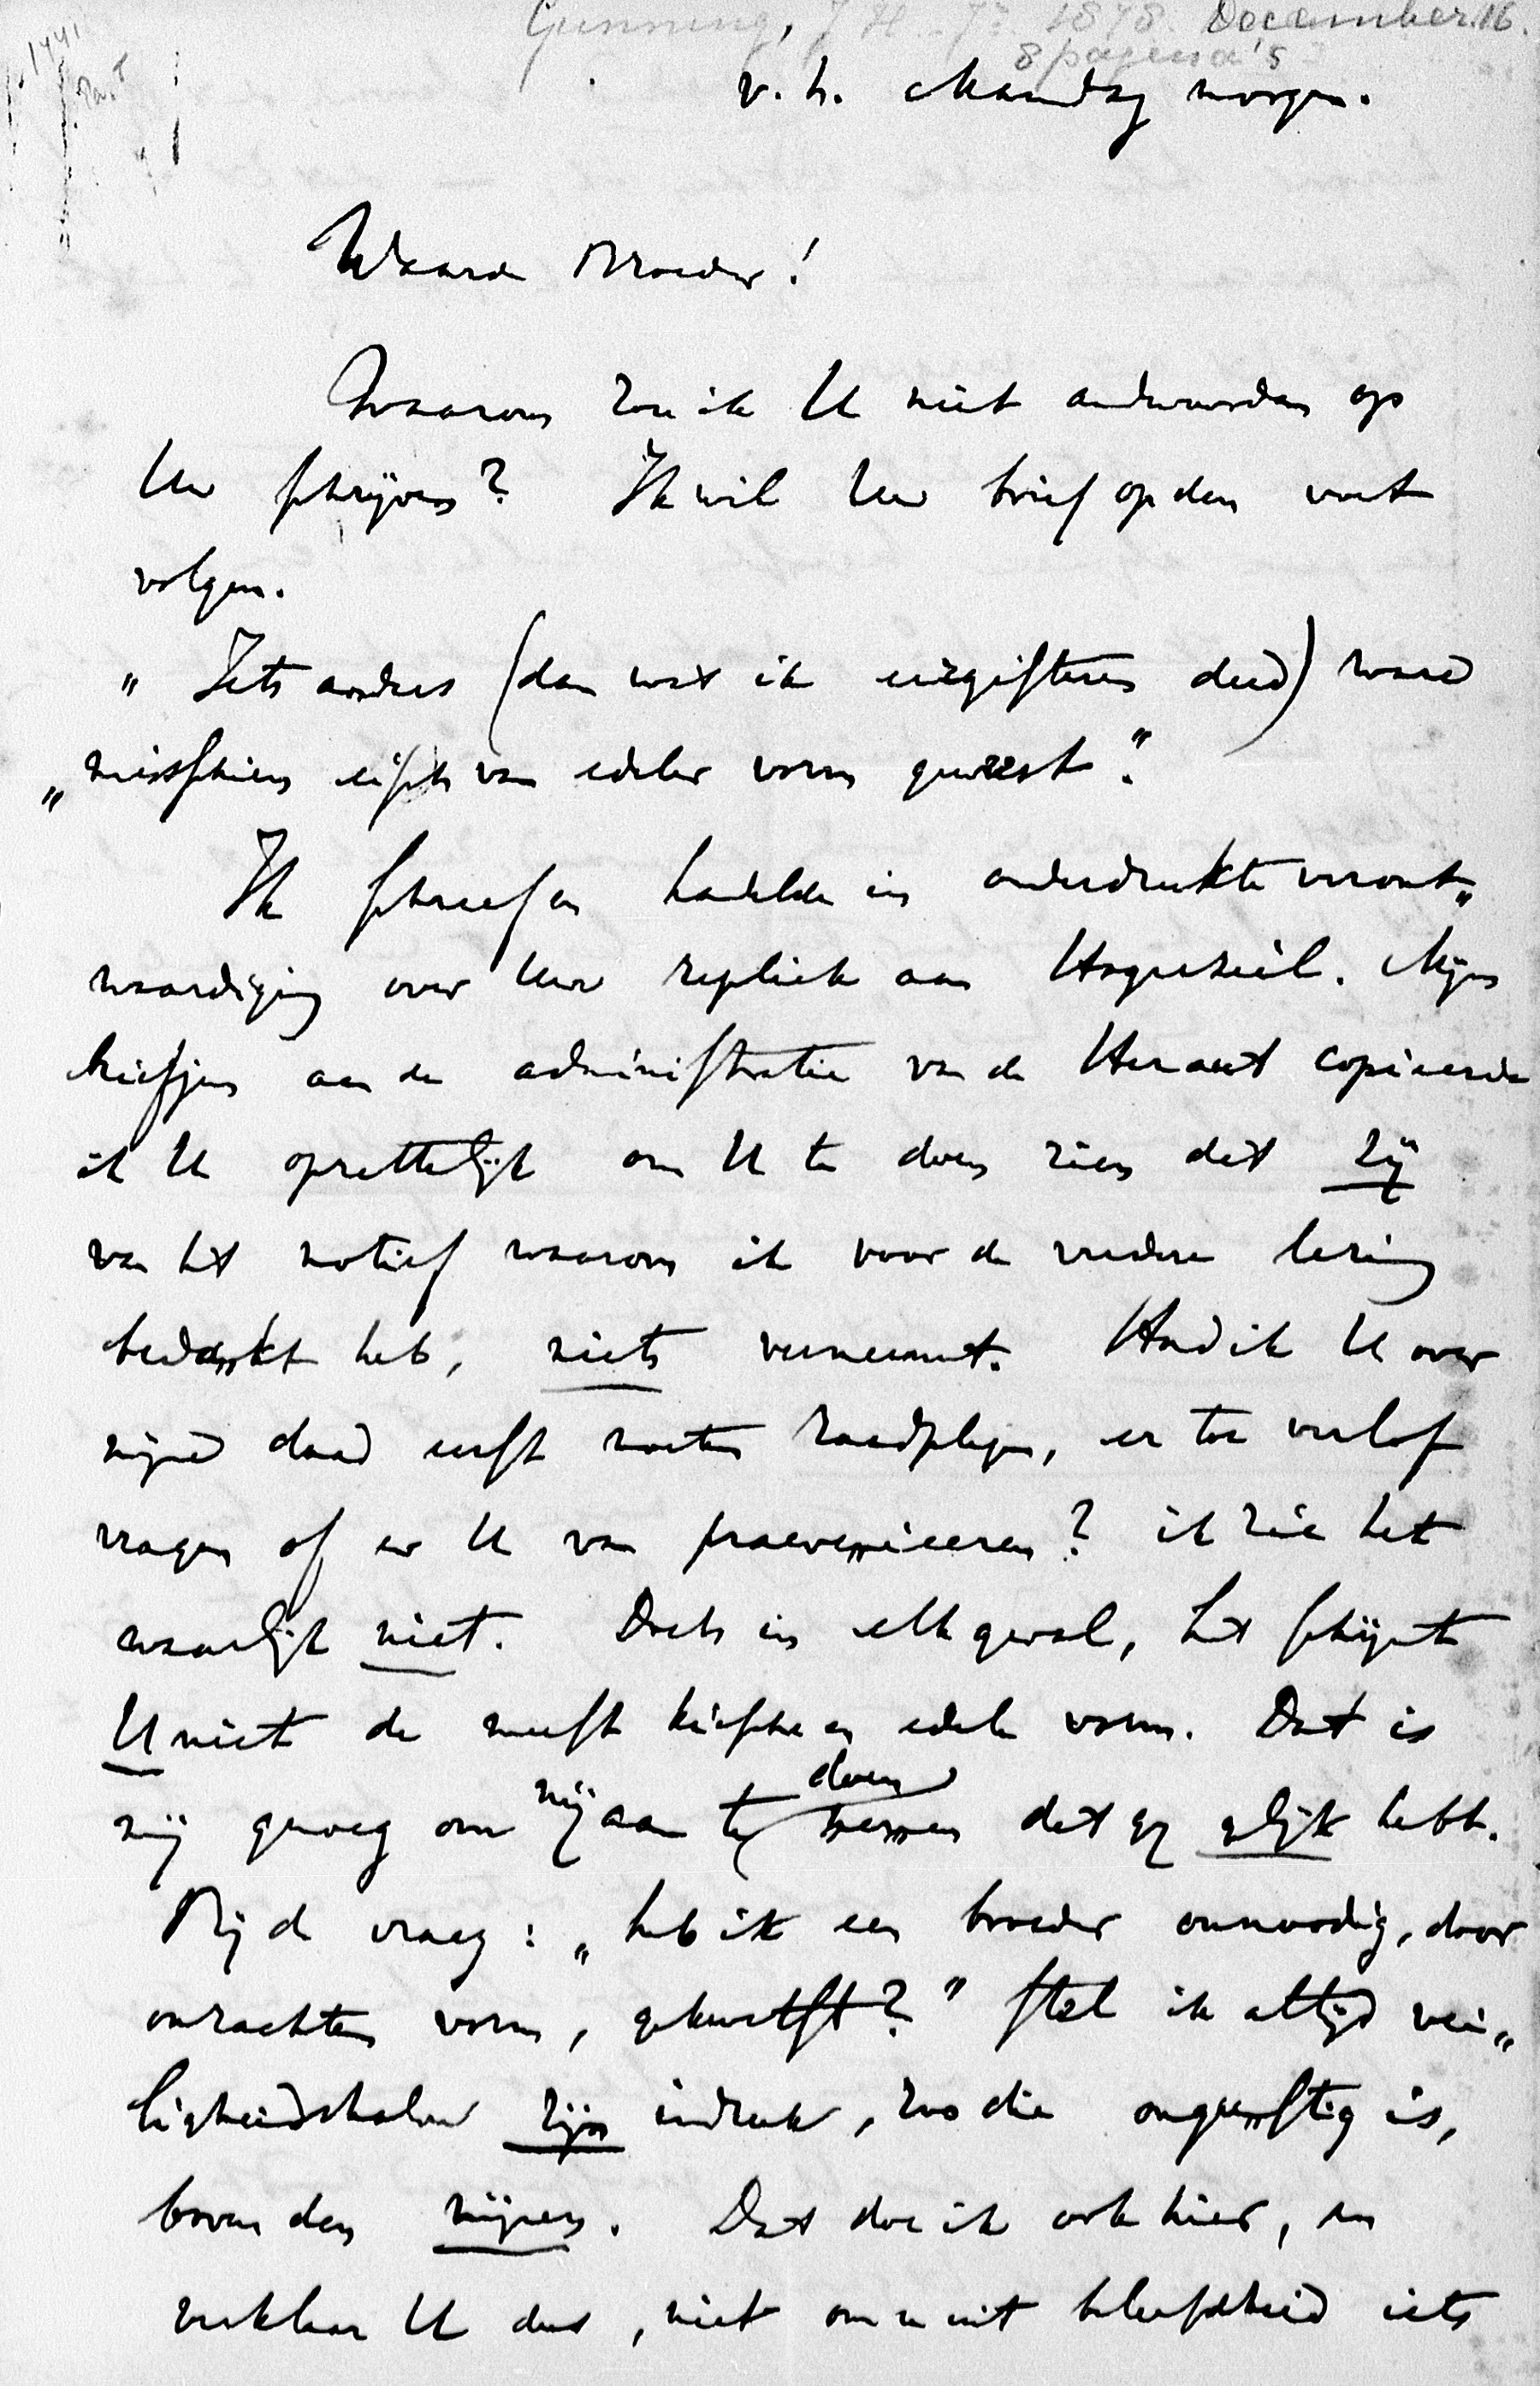 Gunning, J H. Jr. 1878. December 16.
8 pagina's
v. h. Maandag morgen.
Waarde Broeder!
Waarom zou ik U niet andwoorden op
Uw schrijven? Ik wil Uw brief op den voet
volgen.
„Iets anders (dan wat ik eergisteren deed) ware
„misschien eisch van edeler vorm geweest."
Ik schreef en handelde in onderdrukte veront„
waardiging over Uw repliek aan Hogerzeil. Mijn
briefjen aan de administratie van de Heraut copieerde
ik U opzettelijk om U te doen zien dat zij
van het motief waarom ik voor de verdere lezing
bedankt heb, niets verneemt. Had ik U over
mijne daad eerst moeten raadplegen, er toe verlof
vragen of er U van praevenieeren? ik zie het
waarlijk niet. Doch in elk geval, het schijnt
U niet de meest kiesche en edele vorm. Dat is
mij genoeg om mij aan te doen nemen dat gij gelijk hebt.
Bij de vraag: „heb ik een broeder onnoodig, door
onzachten vorm, gekwetst?" stel ik altijd vei„
ligheidshalve zijn indruk, zoo die ongunstig is,
boven den mijnen. Dat doe ik ook hier, en
verklaar U dus, niet om u uit beleefdheid iets